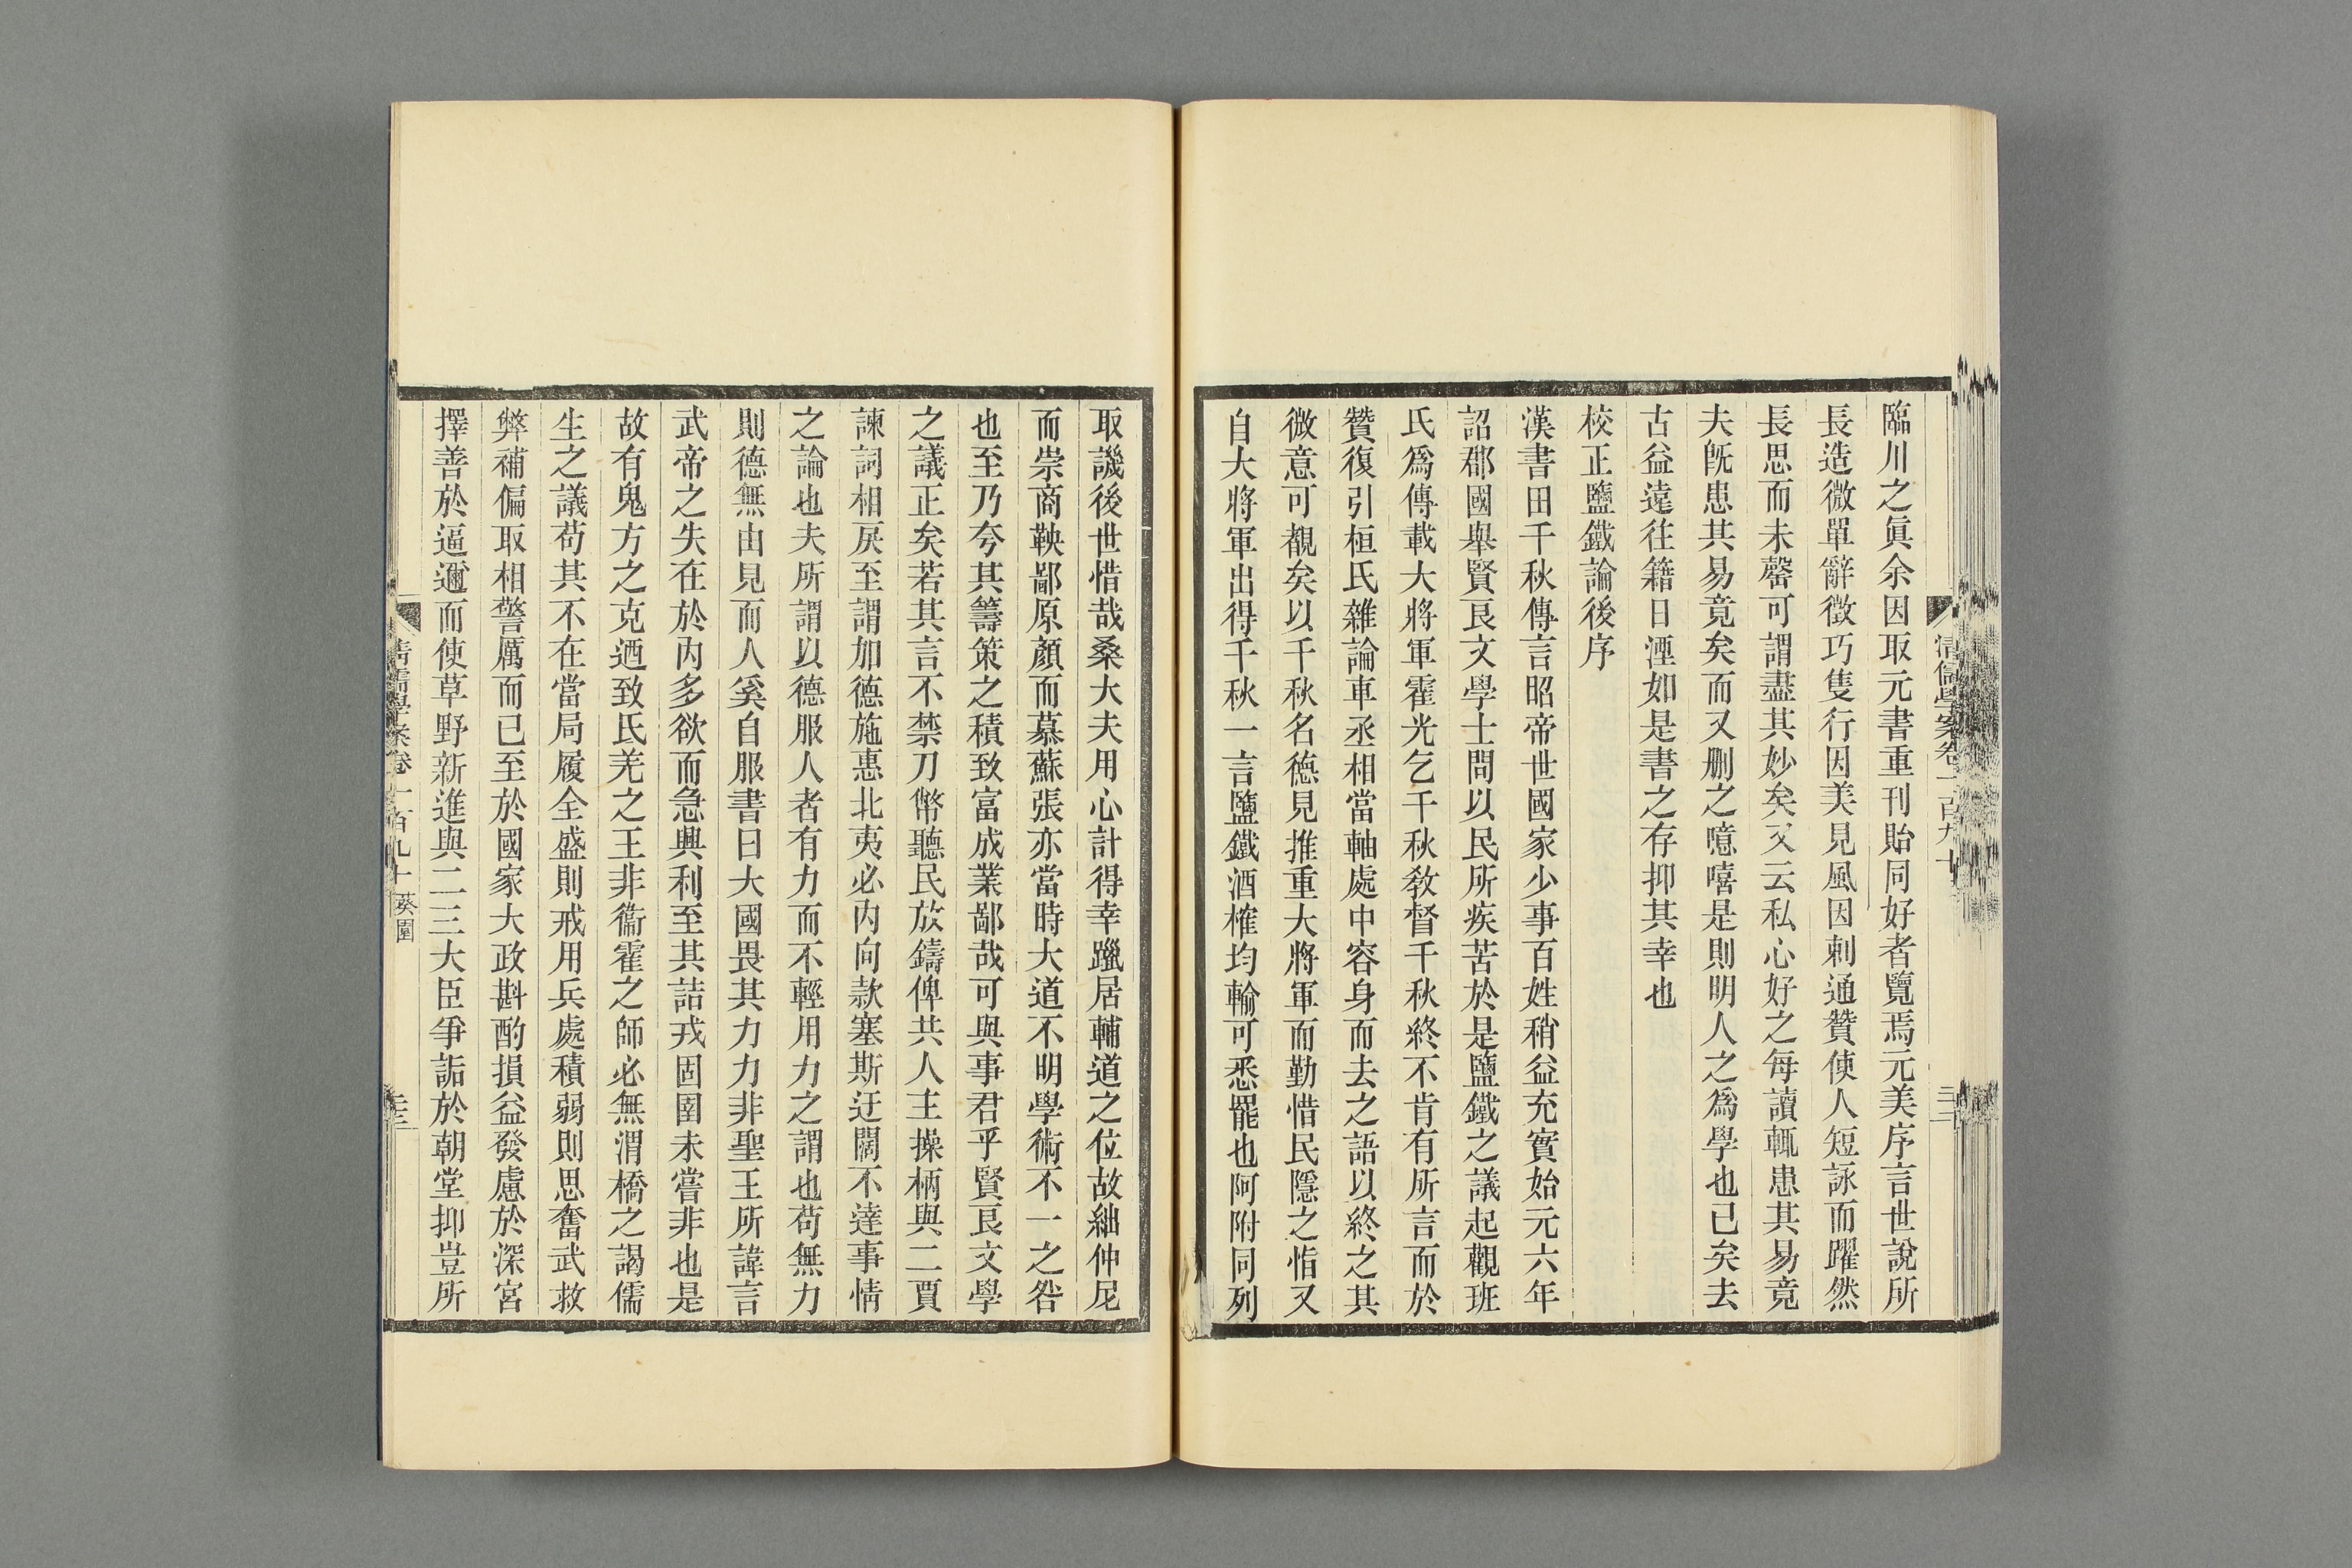 臨川之眞余因取元書重刊貽同好者覽焉元美序言世說所
長造微單辭徵巧隻行因美見風因刺通贊使人短詠而躍然
長思而未罄可謂盡其妙矣又云私心好之每讀輒患其易竟
夫旣患其易竟矣而又刪之噫嘻是則明人之爲學也已矣去
古益遠往籍日湮如是書之存抑其幸也
校正鹽鐵論後序
漢書田千秋傳言昭帝世國家少事百姓稍益充實始元六年
詔郡國舉賢良文學士問以民所疾苦於是鹽鐵之議起觀班
氏爲傳載大將軍霍光乞千秋敎督千秋終不肯有所言而於
贊復引桓氏雜論車丞相當軸處中容身而去之語以終之其
微意可覩矣以千秋名德見推重大將軍而勤惜民隱之恉又
自大將軍出得千秋一言鹽鐵酒榷均輸可悉罷也阿附同列
清儒學案卷一百九十
三十二
取譏後世惜哉桑大夫用心計得幸躐居輔道之位故紬仲尼
而崇商鞅鄙原顏而慕蘇張亦當時大道不明學術不一之咎
也至乃夸其籌策之積致富成業鄙哉可與事君乎賢良文學
之議正矣若其言不禁刀幣聽民放鑄俾共人主操柄與二賈
諫詞相戾至謂加德施惠北夷必內向款塞斯迂闊不達事情
之論也夫所謂以德服人者有力而不輕用力之謂也苟無力
則德無由見而人奚自服書曰大國畏其力力非聖王所諱言
武帝之失在於內多欲而急興利至其詰戎固圉未嘗非也是
故有鬼方之克迺致氐羌之王非衞霍之師必無渭橋之謁儒
生之議苟其不在當局履全盛則戒用兵處積弱則思奮武救
弊補偏取相警厲而已至於國家大政斟酌損益發慮於深宮
擇善於逼邇而使草野新進與二三大臣爭詬於朝堂抑豈所
清儒學案卷一百九十 葵園
三十三